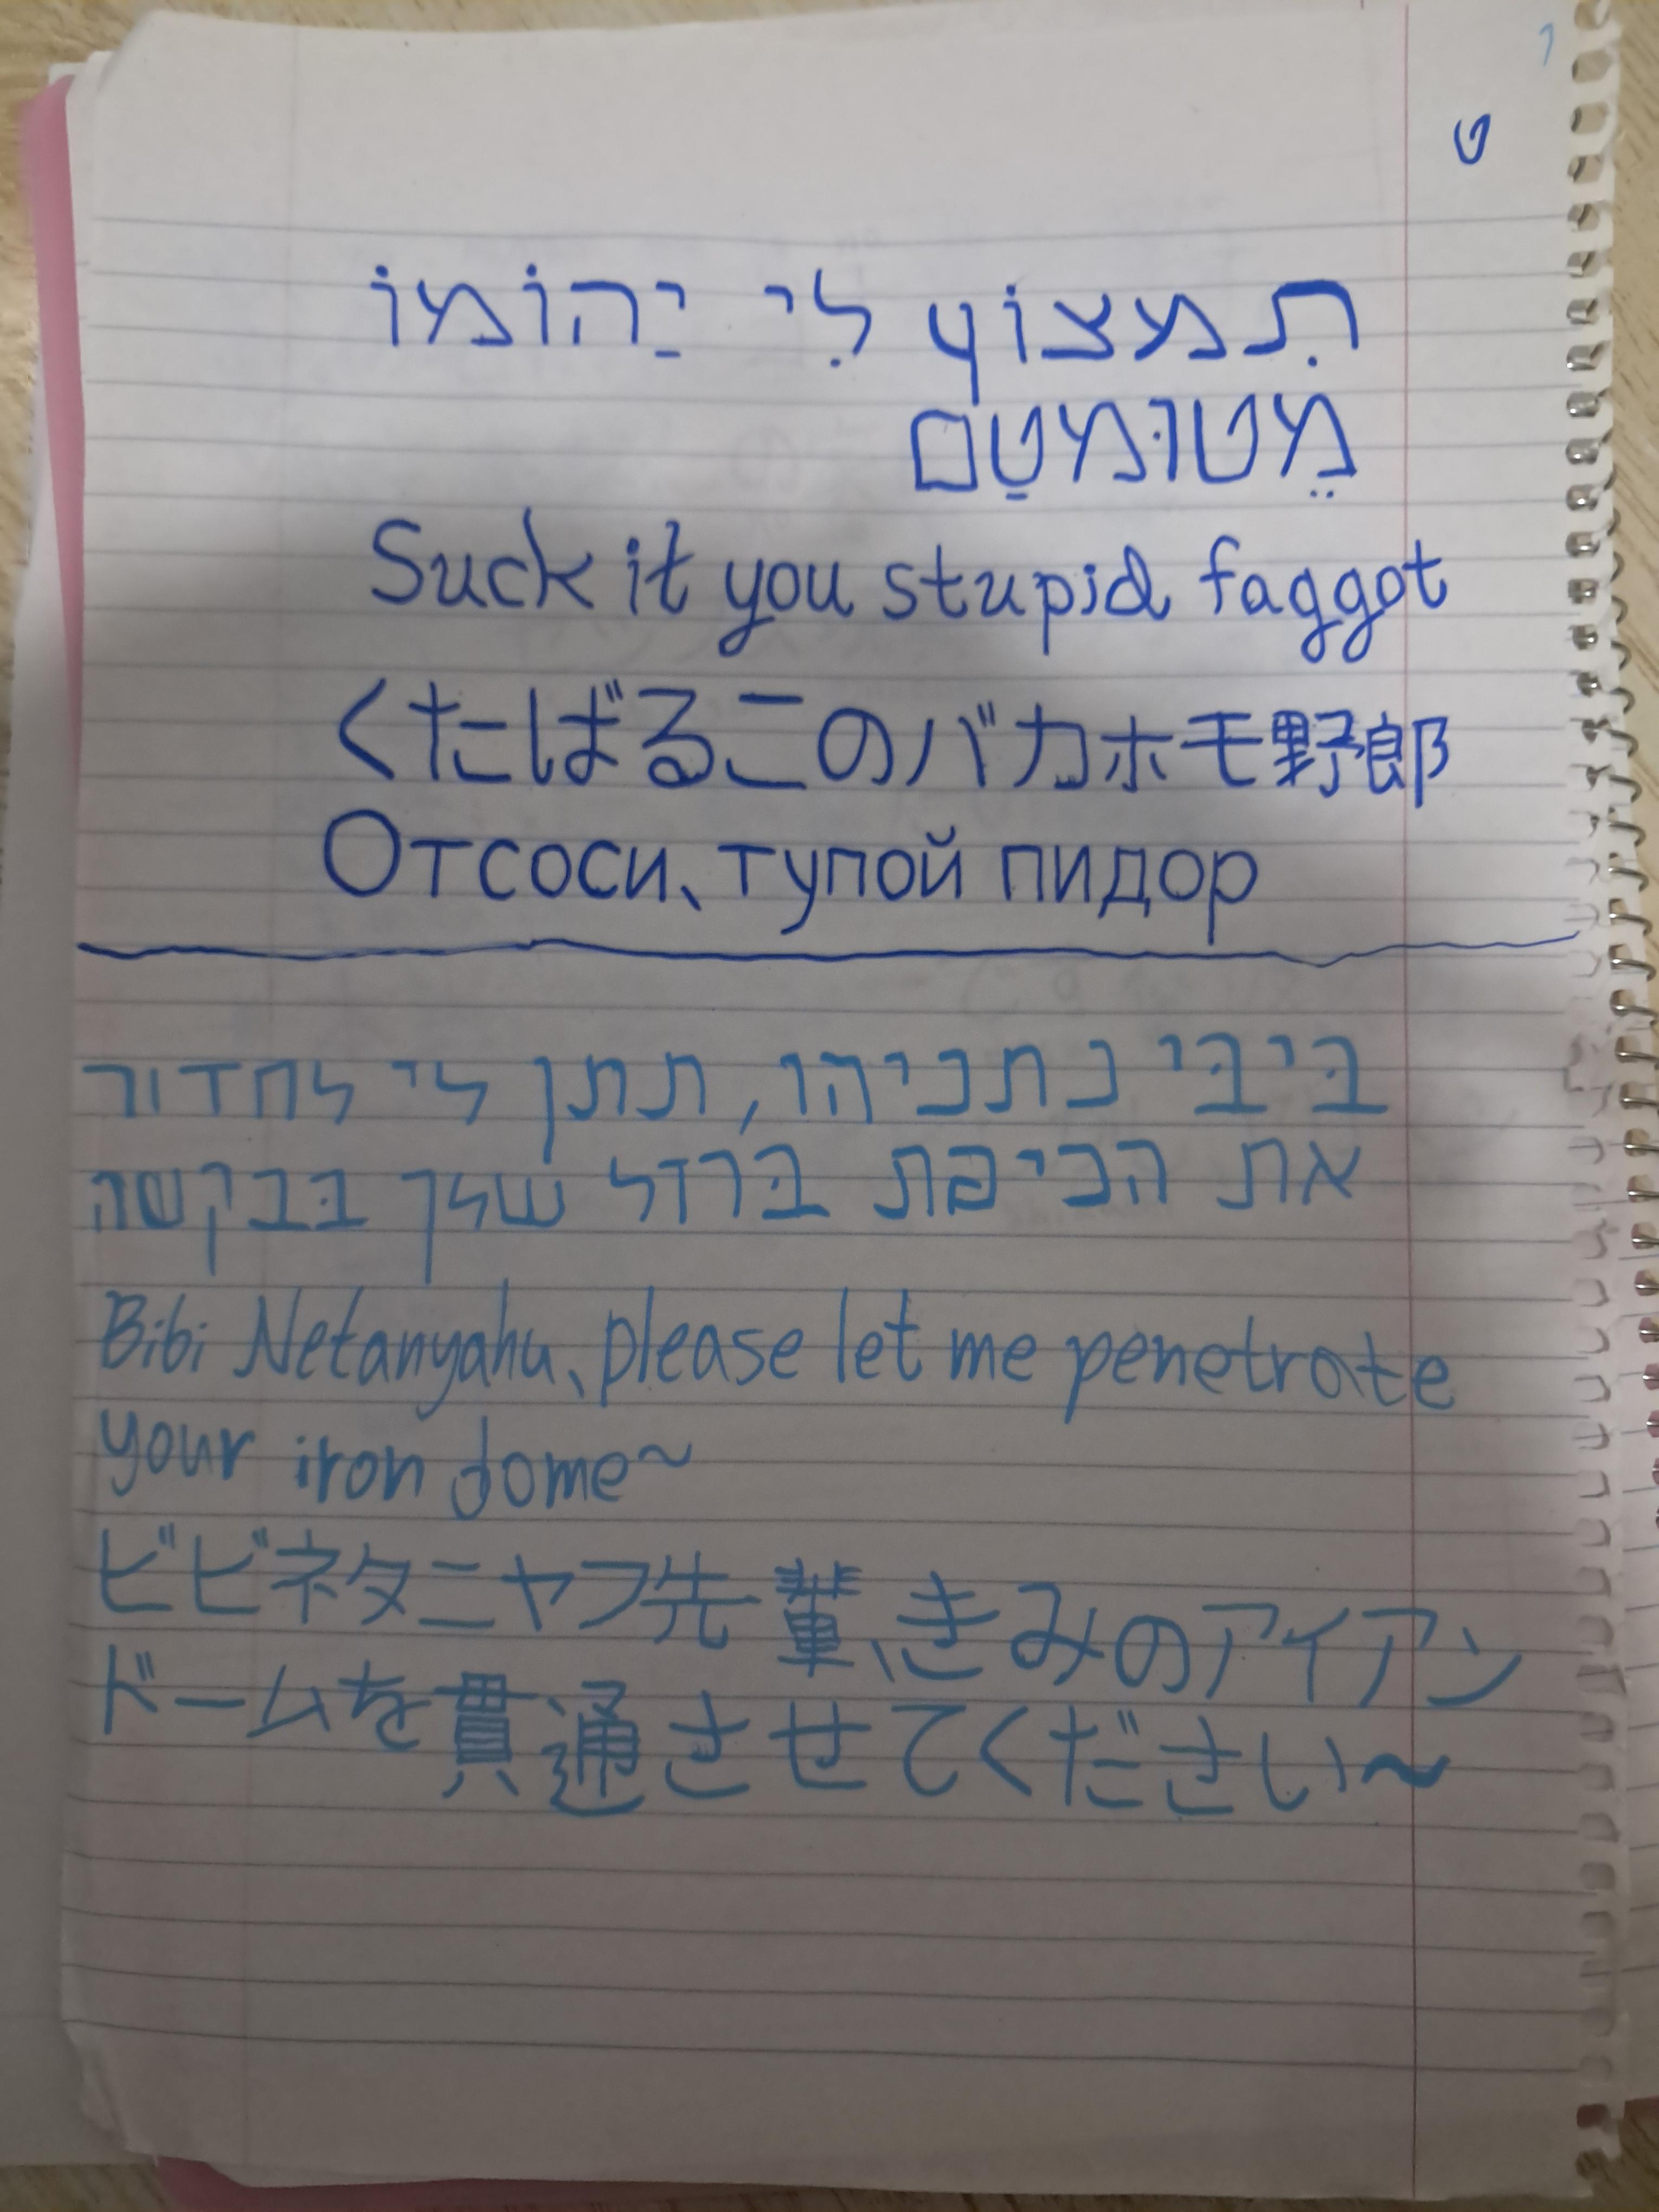 ט
תִמצוֹץ לִי יַהוֹמוֹ
מֵטוּמטַם
Suck it you stupid faggot
くたばるこのバカホモ野郎
Отсоси、тупой пидор
בּיבּי נתניהו, תתן לי לחדור
את הכיפת בּרזל שלך בּבקשה
Bibi Netanyahu、please let me penetrate
your iron dome~
ビビネタニヤフ先輩、きみのアイアン
ドームを貫通させてください~